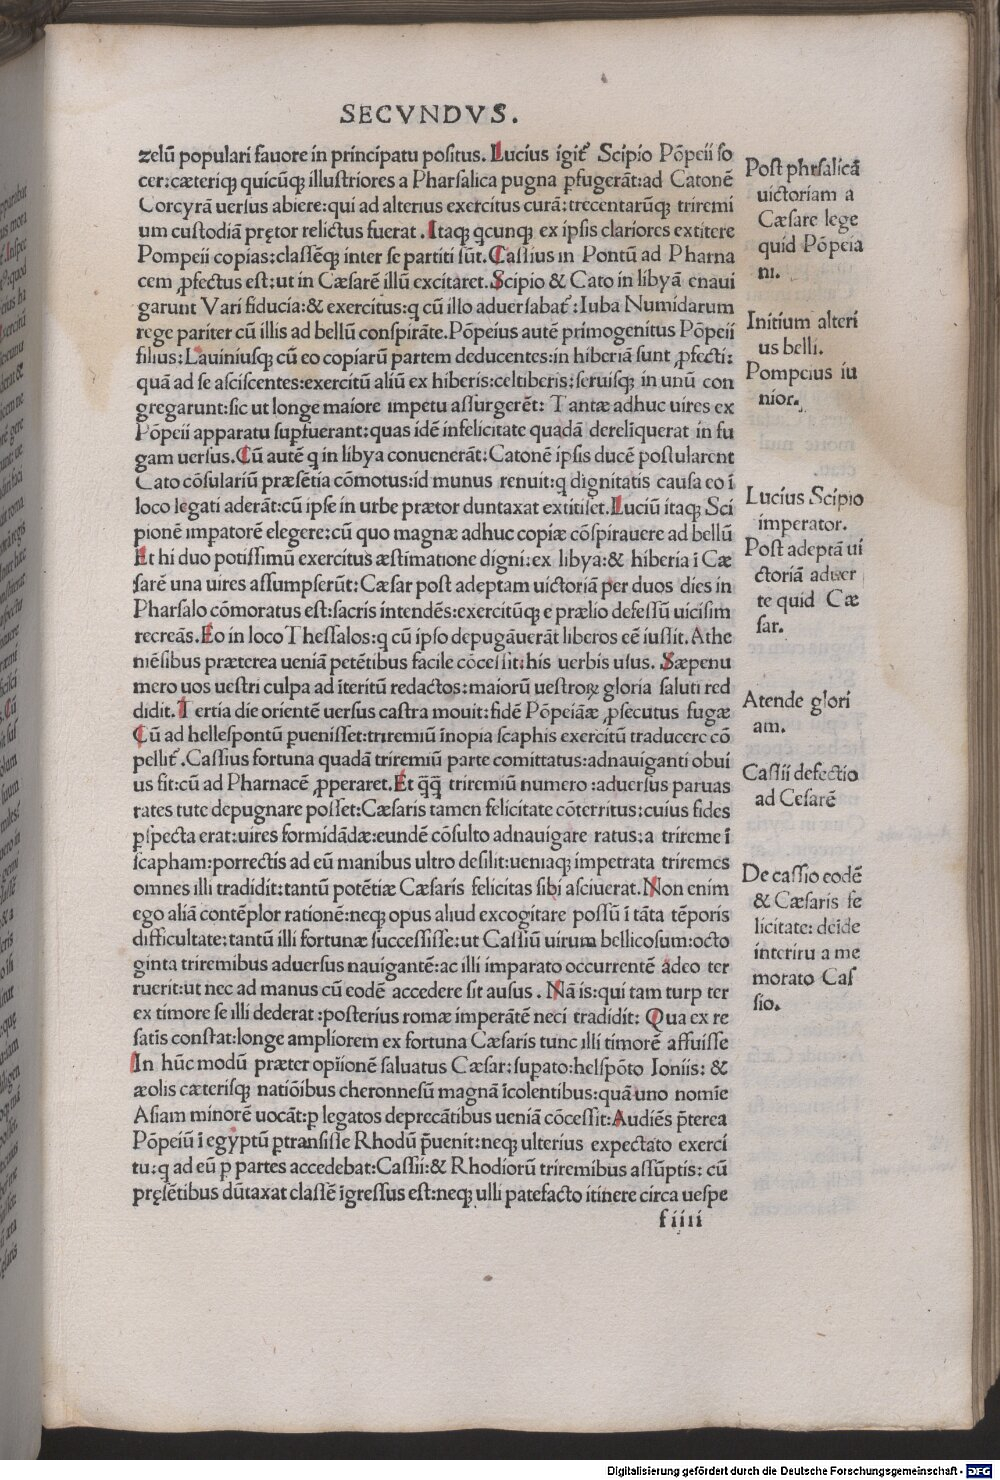 SECVNDVS.
zelū populari fauore in principatu positus. Lucius igit᷑ Scipio Pōpeii so
cer:cæteriqꝫ quicūqꝫ illustriores a Pharsalica pugna ꝓfugerāt:ad Catonē
Corcyrā uersus abiere:qui ad alterius exercitus curā:trecentarūqꝫ triremi
um custodiā prętor relictus fuerat. Itaqꝫ qcunqꝫ ex ipsis clariores extitere
Pompeii copias:classēqꝫ inter se partiti sūt. Cassius in Pontū ad Pharna
cem ꝓfectus est:ut in Cæsarē illū excitaret. Scipio & Cato in libyā enaui
garunt Vari fiducia:& exercitus:q cū illo aduersabat᷑:Iuba Numidarum
rege pariter cū illis ad bellū conspirāte. Pōpeius autē primogenitus Pōpeii
filius:Lauiniusqꝫ cū eo copiarū partem deducentes:in hiberiā sunt ꝓfecti:
quā ad se asciscentes:exercitū aliū ex hiberis:celtiberis:seruisqꝫ in unū con
gregarunt:sic ut longe maiore impetu assurgerēt: Tantæ adhuc uires ex
Pōpeii apparatu supfuerant:quas idē infelicitate quadā dereliquerat in fu
gam uersus. Cū autē q in libya conuenerāt:Catonē ipsis ducē postularent
Cato cōsulariū præsētia cōmotus:id munus renuit:q dignitatis causa eo ī
loco legati aderāt:cū ipse in urbe prætor duntaxat extitiset. Luciū itaqꝫ Sci
pionē impatorē elegere:cū quo magnæ adhuc copiæ cōspirauere ad bellū
Et hi duo potissimū exercitus æstimatione digni:ex libya:& hiberia ī Cæ
sarē una uires assumpserūt:Cæsar post adeptam uictoriā per duos dies in
Pharsalo cōmoratus est:sacris intendēs:exercitūqꝫ e prælio defessū uicisim
recreās. Eo in loco Thessalos:q cū ipso depugāuerāt liberos eē iussit. Athe
niēsibus præterea ueniā petētibus facile cōcessit:his uerbis usus. Sæpenu
mero uos uestri culpa ad īteritū redactos:maiorū uestroꝝ gloria saluti red
didit. Tertia die orientē uersus castra mouit:fidē Pōpeiāæ ꝓsecutus fugæ
Cū ad hellespontū ꝑuenisset:triremiū īnopia scaphis exercitū traducere cō
pellit᷑. Cassius fortuna quadā triremiū parte comittatus:adnauiganti obui
us fit:cū ad Pharnacē ꝓpperaret. Et q̄q̄ triremiū numero:aduersus paruas
rates tute depugnare posset:Cæsaris tamen felicitate cōterritus:cuius fides
pspecta erat:uires formidādæ:eundē cōsulto adnauigare ratus:a trireme ī
scapham:porrectis ad eū manibus ultro desilit:ueniaqꝫ impetrata triremes
omnes illi tradidit:tantū potētiæ Cæsaris felicitas sibi asciuerat. Non enim
ego aliā contēplor rationē:neqꝫ opus aliud excogitare possū ī tāta tēporis
difficultate:tantū illi fortunæ successisse:ut Cassiū uirum bellicosum:octo
ginta triremibus aduersus nauigantē:ac illi imparato occurrentē adeo ter
ruerit:ut nec ad manus cū eodē accedere sit ausus. Nā is:qui tam turp ter
ex timore se illi dederat:posterius romæ imperātē neci tradidit: Qua ex re
satis constat:longe ampliorem ex fortuna Cæsaris tunc illi timorē affuisse
In hūc modū præter opiionē saluatus Cæsar:supato:helspōto Ioniis: &
æolis cæterisqꝫ natiōibus cheronnesū magnā īcolentibus:quā uno nomīe
Asiam minorē uocāt:ꝑ legatos deprecātibus ueniā cōcessit:Audiēs p̄terea
Pōpeiū ī egyptū ꝑtransisse Rhodū p̄uenit:neqꝫ ulterius expectato exerci
tu:q ad eū ꝑ partes accedebat:Cassii:& Rhodiorū triremibus assūptis: cū
pręsētibus dūtaxat classē īgressus est:neqꝫ ulli patefacto itinere circa uespe
f iiii
Post phrsalicā
uictoriam a
Cæsare lege
quid Pōpeia
ni.
Initium alteri
us belli.
Pompeius iu
nior.
Lucius Scipio
imperator.
Post adeptā ui
ctoriā aduer
te quid Cæ
sar.
Atende glori
am.
Cassii defectio
ad Cesarē
De cassio eodē
& Cæsaris fe
licitate: deīde
interitu a me
morato Cas
sio.
Digitalisierung gefördert durch die Deutsche Forschungsgemeinschaft - DFG